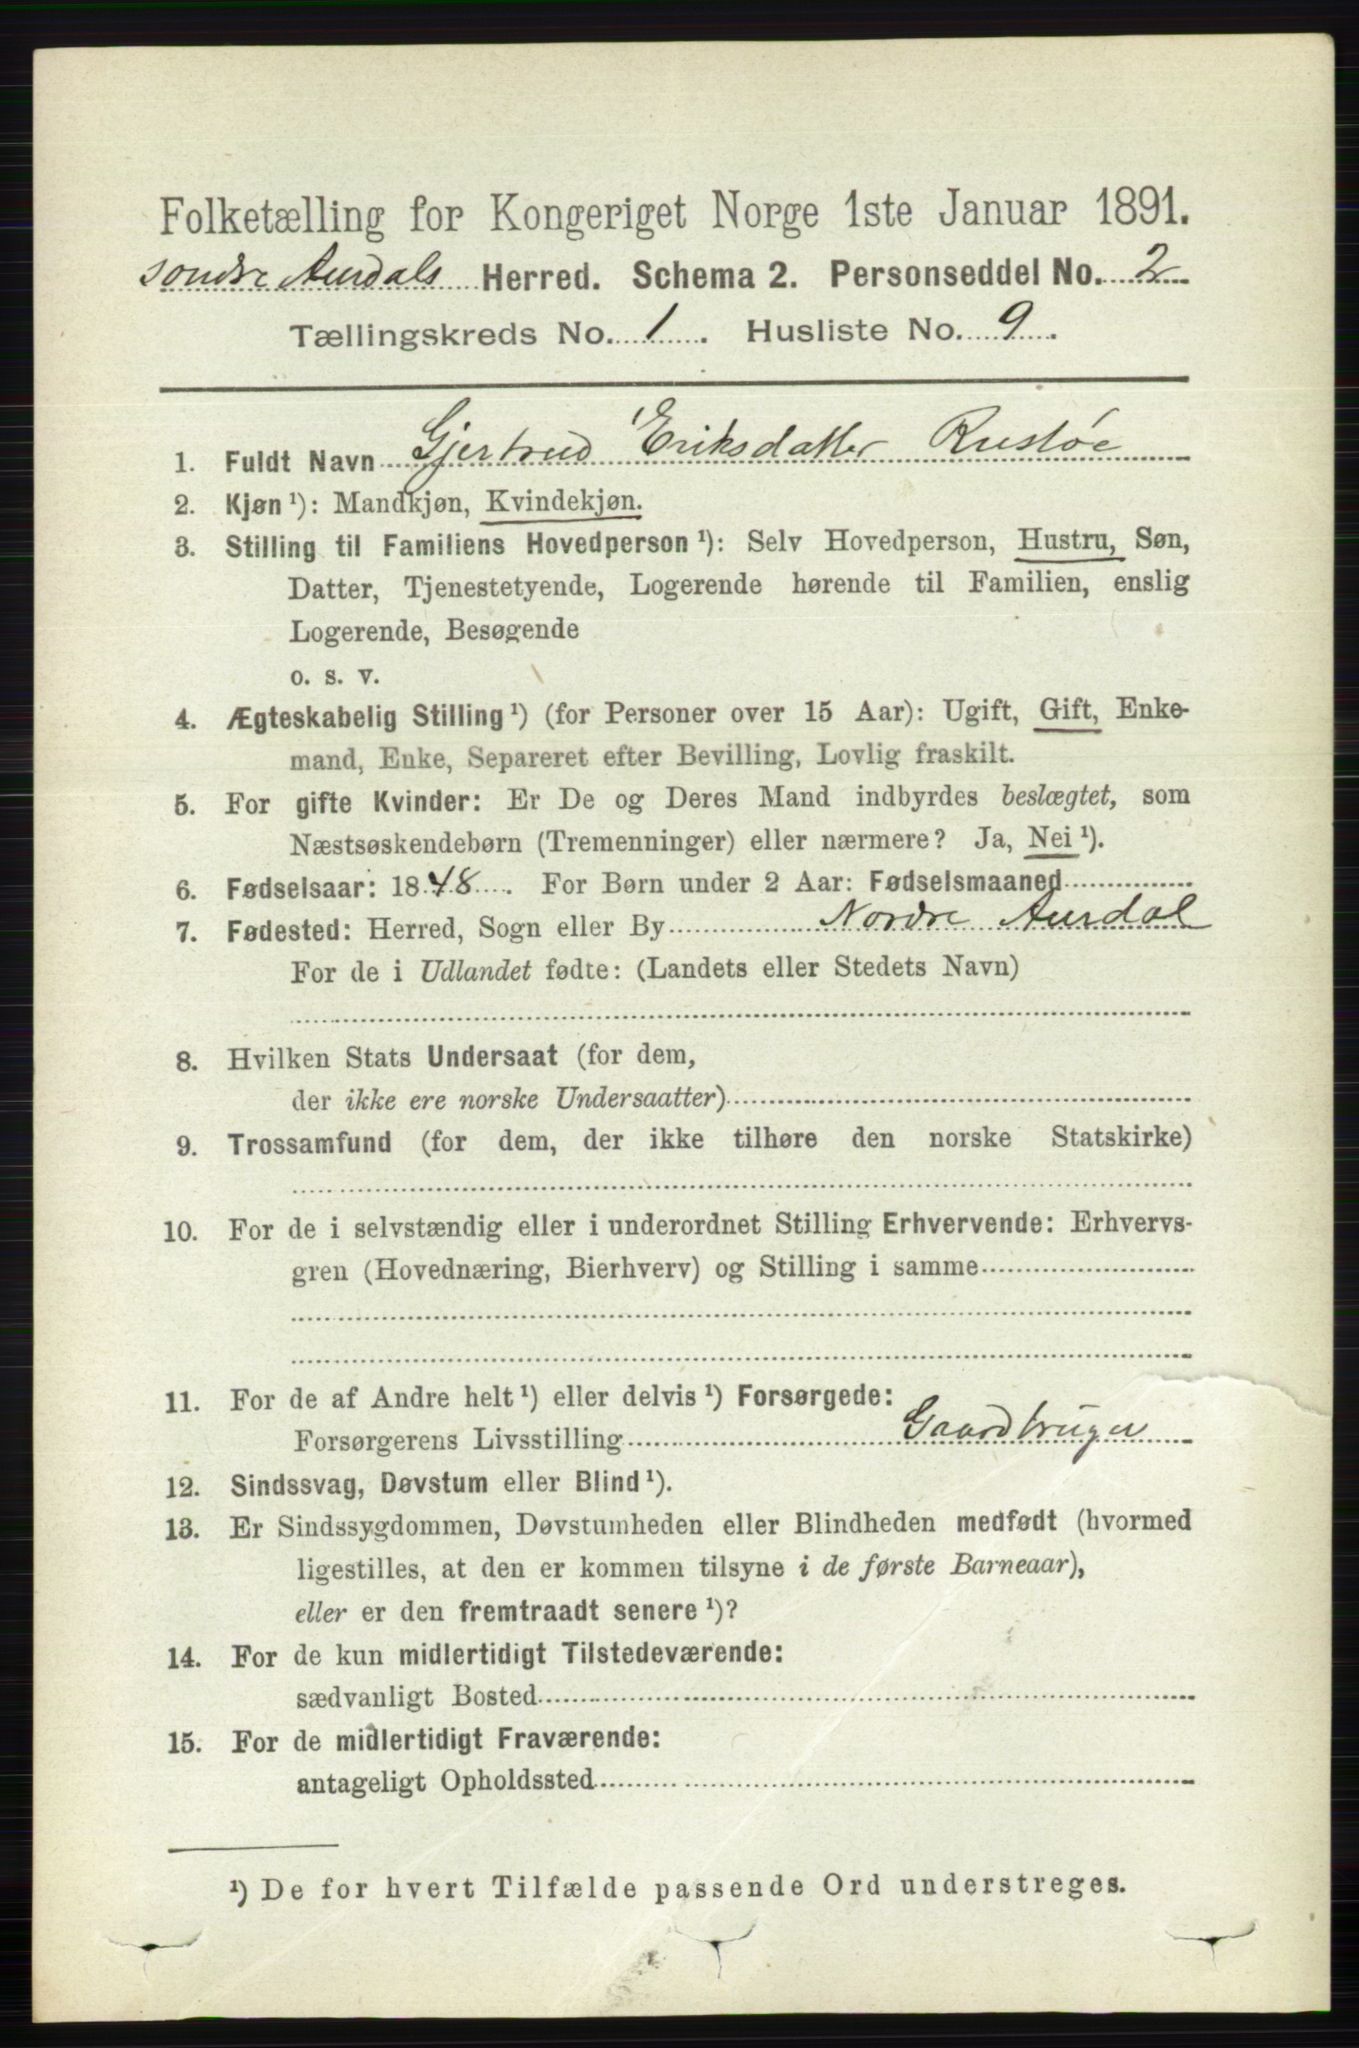 Folketælling for Kongeriget Norge 1ste Januar 1891.
søndre Aurdals Herred. Schema 2. Personseddel No. 2
Tællingskreds No. 1. Husliste No. 9.
1. Fuldt Navn Gjertrud Eriksdatter Rustøe
2. Kjøn ¹): Mandkjøn, Kvindekjøn.
3. Stilling til Familiens Hovedperson ¹): Selv Hovedperson, Hustru, Søn,
Datter, Tjenestetyende, Logerende hørende til Familien, enslig
Logerende, Besøgende
o. s. v.
4. Ægteskabelig Stilling ¹) (for Personer over 15 Aar): Ugift, Gift, Enke-
mand, Enke, Separeret efter Bevilling, Lovlig fraskilt.
5. For gifte Kvinder: Er De og Deres Mand indbyrdes beslægtet, som
Næstsøskendebørn (Tremenninger) eller nærmere? Ja, Nei ¹).
6. Fødselsaar: 1848. For Børn under 2 Aar: Fødselsmaaned
7. Fødested: Herred, Sogn eller By Nordre Aurdal
For de i Udlandet fødte: (Landets eller Stedets Navn)
8. Hvilken Stats Undersaat (for dem,
der ikke ere norske Undersaatter)
9. Trossamfund (for dem, der ikke tilhøre den norske Statskirke)
10. For de i selvstændig eller i underordnet Stilling Erhvervende: Erhvervs-
gren (Hovednæring, Bierhverv) og Stilling i samme
11. For de af Andre helt ¹) eller delvis ¹) Forsørgede:
Forsørgerens Livsstilling Gaardbruger
12. Sindssvag, Døvstum eller Blind ¹).
13. Er Sindssygdommen, Døvstumheden eller Blindheden medfødt (hvormed
ligestilles, at den er kommen tilsyne i de første Barneaar),
eller er den fremtraadt senere ¹)?
14. For de kun midlertidigt Tilstedeværende:
sædvanligt Bosted
15. For de midlertidigt Fraværende:
antageligt Opholdssted
¹) De for hvert Tilfælde passende Ord understreges.